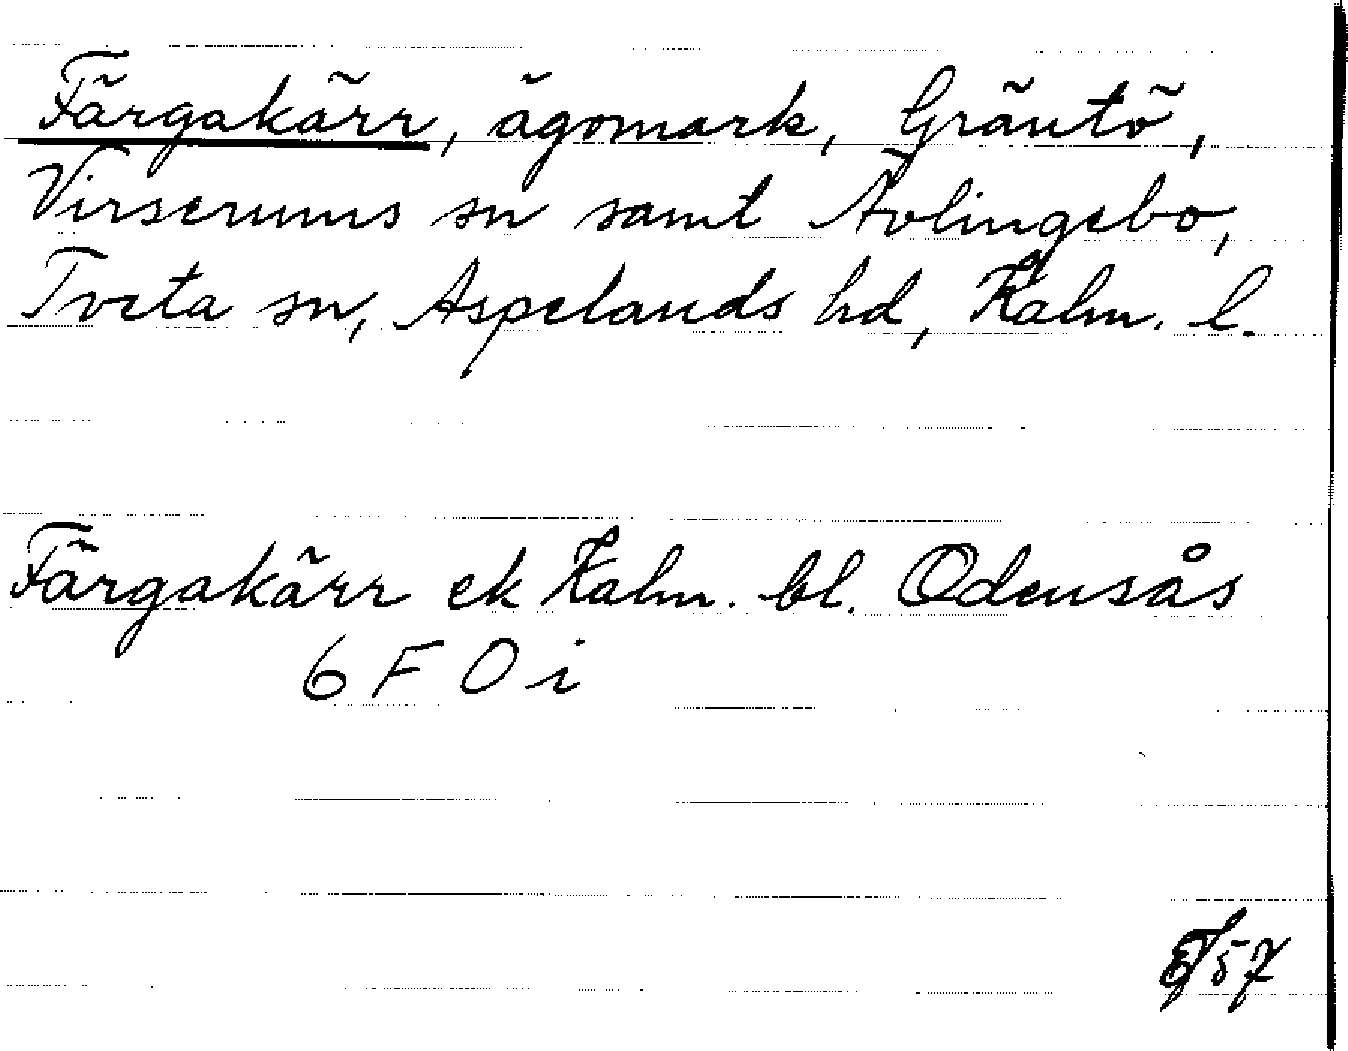 Färgakärr, ägomark, Gräntö,
Virserums sn samt Ävlingebo,
Tveta sn, Aspelands hd, Kalm. l.
Färgakärr ek Kalm. bl. Odensås
6 F 0 i
57